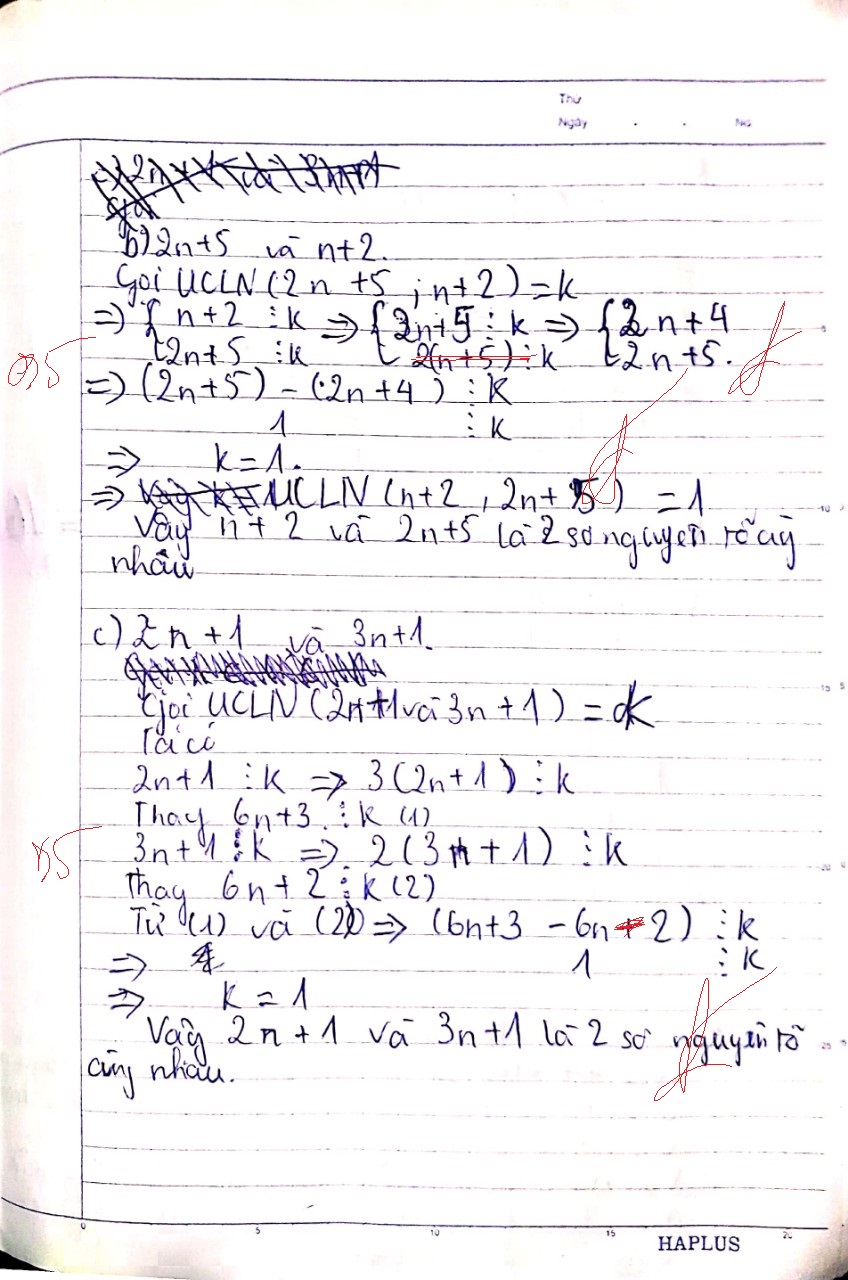 Thứ
Ngày . . No
b) 2n+5 và n+2.
Gọi UCLN (2n +5 ; n+2) = k
=> { n+2 ⋮ k => { 2n+4 ⋮ k => { 2n+4
2n+5 ⋮ k 2(n+5) ⋮ k 2n+5.
=> (2n+5) - (2n+4) ⋮ k
1 ⋮ k
=> k = 1.
=> UCLN (n+2 , 2n+5) = 1
Vậy n+2 và 2n+5 là 2 số nguyên tố cùng
nhau
c) 2n+1 và 3n+1.
Gọi UCLN (2n+1 và 3n+1) = k
Ta có
2n+1 ⋮ k => 3(2n+1) ⋮ k
Thay 6n+3 ⋮ k (1)
3n+1 ⋮ k => 2(3n+1) ⋮ k
Thay 6n+2 ⋮ k (2)
Từ (1) và (2) => (6n+3 - 6n - 2) ⋮ k
=> 1 ⋮ k
=> k = 1
Vậy 2n+1 và 3n+1 là 2 số nguyên tố
cùng nhau.
0 5 10 15 20
HAPLUS